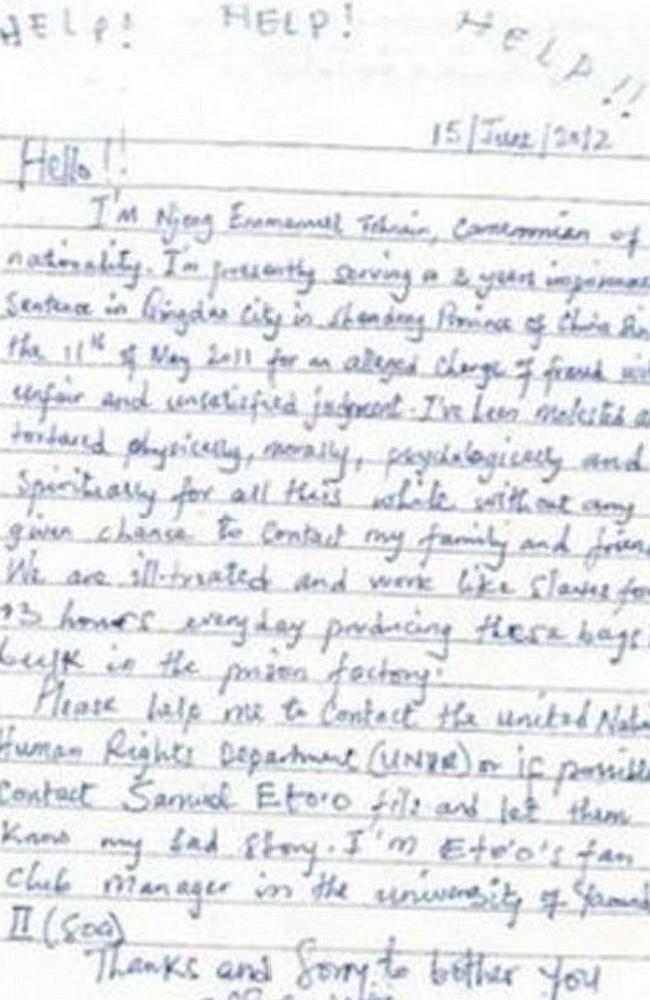 HELP! HELP! HELP!!
15/June/2012
Hello!!
I'm Njong Emmanuel Tohnain, Cameroonian of
nationality. I'm presently serving a 3 years
sentence in Qingdao City in Shandong Province of China
the 11th of May 2011 for an alleged charge of fraud
unfair and unsatisfied judgment. I've been molested
tortured physically, morally, psychologically and
Spiritually for all this while without any
given chance to contact my family and
We are ill-treated and work like slaves for
13 hours everyday producing these bags
bulk in the prison factory.
Please help me to contact the united
Human Rights Department (UNHR) or if possible
contact Samuel Eto'o fils and let them
know my sad story. I'm Eto'o's fan
club manager in the university of
II (Soa)
Thanks and Sorry to bother you